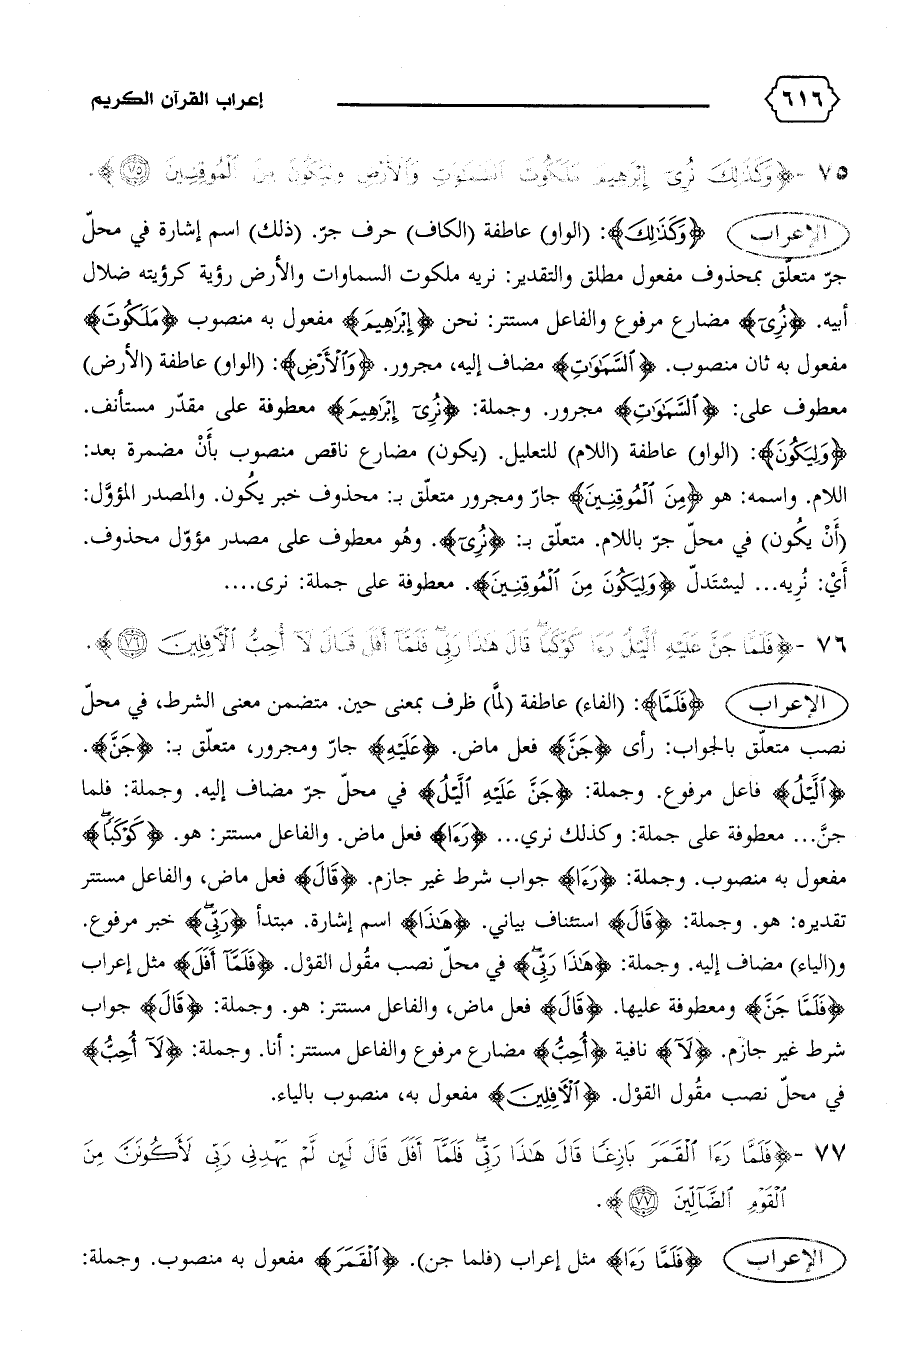 ٦١٦ إعراب القرآن الكريم
٧٥ - ﴿وَكَذَٰلِكَ نُرِيٓ إِبْرَٰهِيمَ مَلَكُوتَ ٱلسَّمَٰوَٰتِ وَٱلْأَرْضِ وَلِيَكُونَ مِنَ ٱلْمُوقِنِينَ ٧٥﴾.
الإعراب ﴿وَكَذَٰلِكَ﴾: (الواو) عاطفة (الكاف) حرف جرّ. (ذلك) اسم إشارة في محلّ
جرّ متعلّق بمحذوف مفعول مطلق والتقدير: نريه ملكوت السماوات والأرض رؤية كرؤيته ضلال
أبيه. ﴿نُرِيٓ﴾ مضارع مرفوع والفاعل مستتر: نحن ﴿إِبْرَٰهِيمَ﴾ مفعول به منصوب ﴿مَلَكُوتَ﴾
مفعول به ثان منصوب. ﴿ٱلسَّمَٰوَٰتِ﴾ مضاف إليه، مجرور. ﴿وَٱلْأَرْضِ﴾: (الواو) عاطفة (الأرض)
معطوف على: ﴿ٱلسَّمَٰوَٰتِ﴾ مجرور. وجملة: ﴿نُرِيٓ إِبْرَٰهِيمَ﴾ معطوفة على مقدّر مستأنف.
﴿وَلِيَكُونَ﴾: (الواو) عاطفة (اللام) للتعليل. (يكون) مضارع ناقص منصوب بأنْ مضمرة بعد:
اللام. واسمه: هو ﴿مِنَ ٱلْمُوقِنِينَ﴾ جارّ ومجرور متعلّق بـ: محذوف خبر يكُون. والمصدر المؤوَّل:
(أَنْ يكُون) في محلّ جرّ باللام. متعلّق بـ: ﴿نُرِيٓ﴾. وهُو معطوف على مصدر مؤوّل محذوف.
أَيْ: نُرِيه... ليسْتَدلّ ﴿وَلِيَكُونَ مِنَ ٱلْمُوقِنِينَ﴾. معطوفة على جملة: نرى....
٧٦ - ﴿فَلَمَّا جَنَّ عَلَيْهِ ٱلَّيْلُ رَءَا كَوْكَبًا ۖ قَالَ هَٰذَا رَبِّي ۖ فَلَمَّآ أَفَلَ قَالَ لَآ أُحِبُّ ٱلْآفِلِينَ ٧٦﴾.
الإعراب ﴿فَلَمَّا﴾: (الفاء) عاطفة (لمَّا) ظرف بمعنى حين. متضمن معنى الشرط، في محلّ
نصب متعلّق بالجواب: رأى ﴿جَنَّ﴾ فعل ماض. ﴿عَلَيْهِ﴾ جارّ ومجرور، متعلّق بـ: ﴿جَنَّ﴾.
﴿ٱلَّيْلُ﴾ فاعل مرفوع. وجملة: ﴿جَنَّ عَلَيْهِ ٱلَّيْلُ﴾ في محلّ جرّ مضاف إليه. وجملة: فلما
جنَّ... معطوفة على جملة: وكذلك نري... ﴿رَءَا﴾ فعل ماض. والفاعل مستتر: هو. ﴿كَوْكَبًا ۖ﴾
مفعول به منصوب. وجملة: ﴿رَءَا﴾ جواب شرط غير جازم. ﴿قَالَ﴾ فعل ماض، والفاعل مستتر
تقديره: هو. وجملة: ﴿قَالَ﴾ استئناف بياني. ﴿هَٰذَا﴾ اسم إشارة. مبتدأ ﴿رَبِّي ۖ﴾ خبر مرفوع.
و(الياء) مضاف إليه. وجملة: ﴿هَٰذَا رَبِّي ۖ﴾ في محلّ نصب مقُول القوْل. ﴿فَلَمَّآ أَفَلَ﴾ مثل إعراب
﴿فَلَمَّا جَنَّ﴾ ومعطوفة عليها. ﴿قَالَ﴾ فعل ماض، والفاعل مستتر: هو. وجملة: ﴿قَالَ﴾ جواب
شرط غير جازم. ﴿لَآ﴾ نافية ﴿أُحِبُّ﴾ مضارع مرفوع والفاعل مستتر: أنا. وجملة: ﴿لَآ أُحِبُّ﴾
في محلّ نصب مقُول القوْل. ﴿ٱلْآفِلِينَ﴾ مفعول به، منصوب بالياء.
٧٧ - ﴿فَلَمَّا رَءَا ٱلْقَمَرَ بَازِغًا قَالَ هَٰذَا رَبِّي ۖ فَلَمَّآ أَفَلَ قَالَ لَئِن لَّمْ يَهْدِنِي رَبِّي لَأَكُونَنَّ مِنَ
ٱلْقَوْمِ ٱلضَّآلِّينَ ٧٧﴾.
الإعراب ﴿فَلَمَّا رَءَا﴾ مثل إعراب (فلما جن). ﴿ٱلْقَمَرَ﴾ مفعول به منصوب. وجملة: